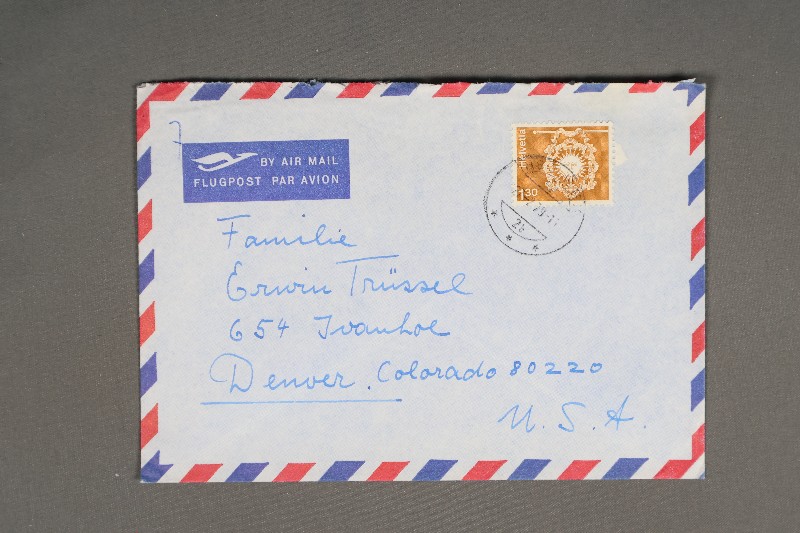 BY AIR MAIL
FLUGPOST PAR AVION
Helvetia
130
Familie
Erwin Trüssel
654 Ivanhoe
Denver, Colorado 80220
U. S. A.